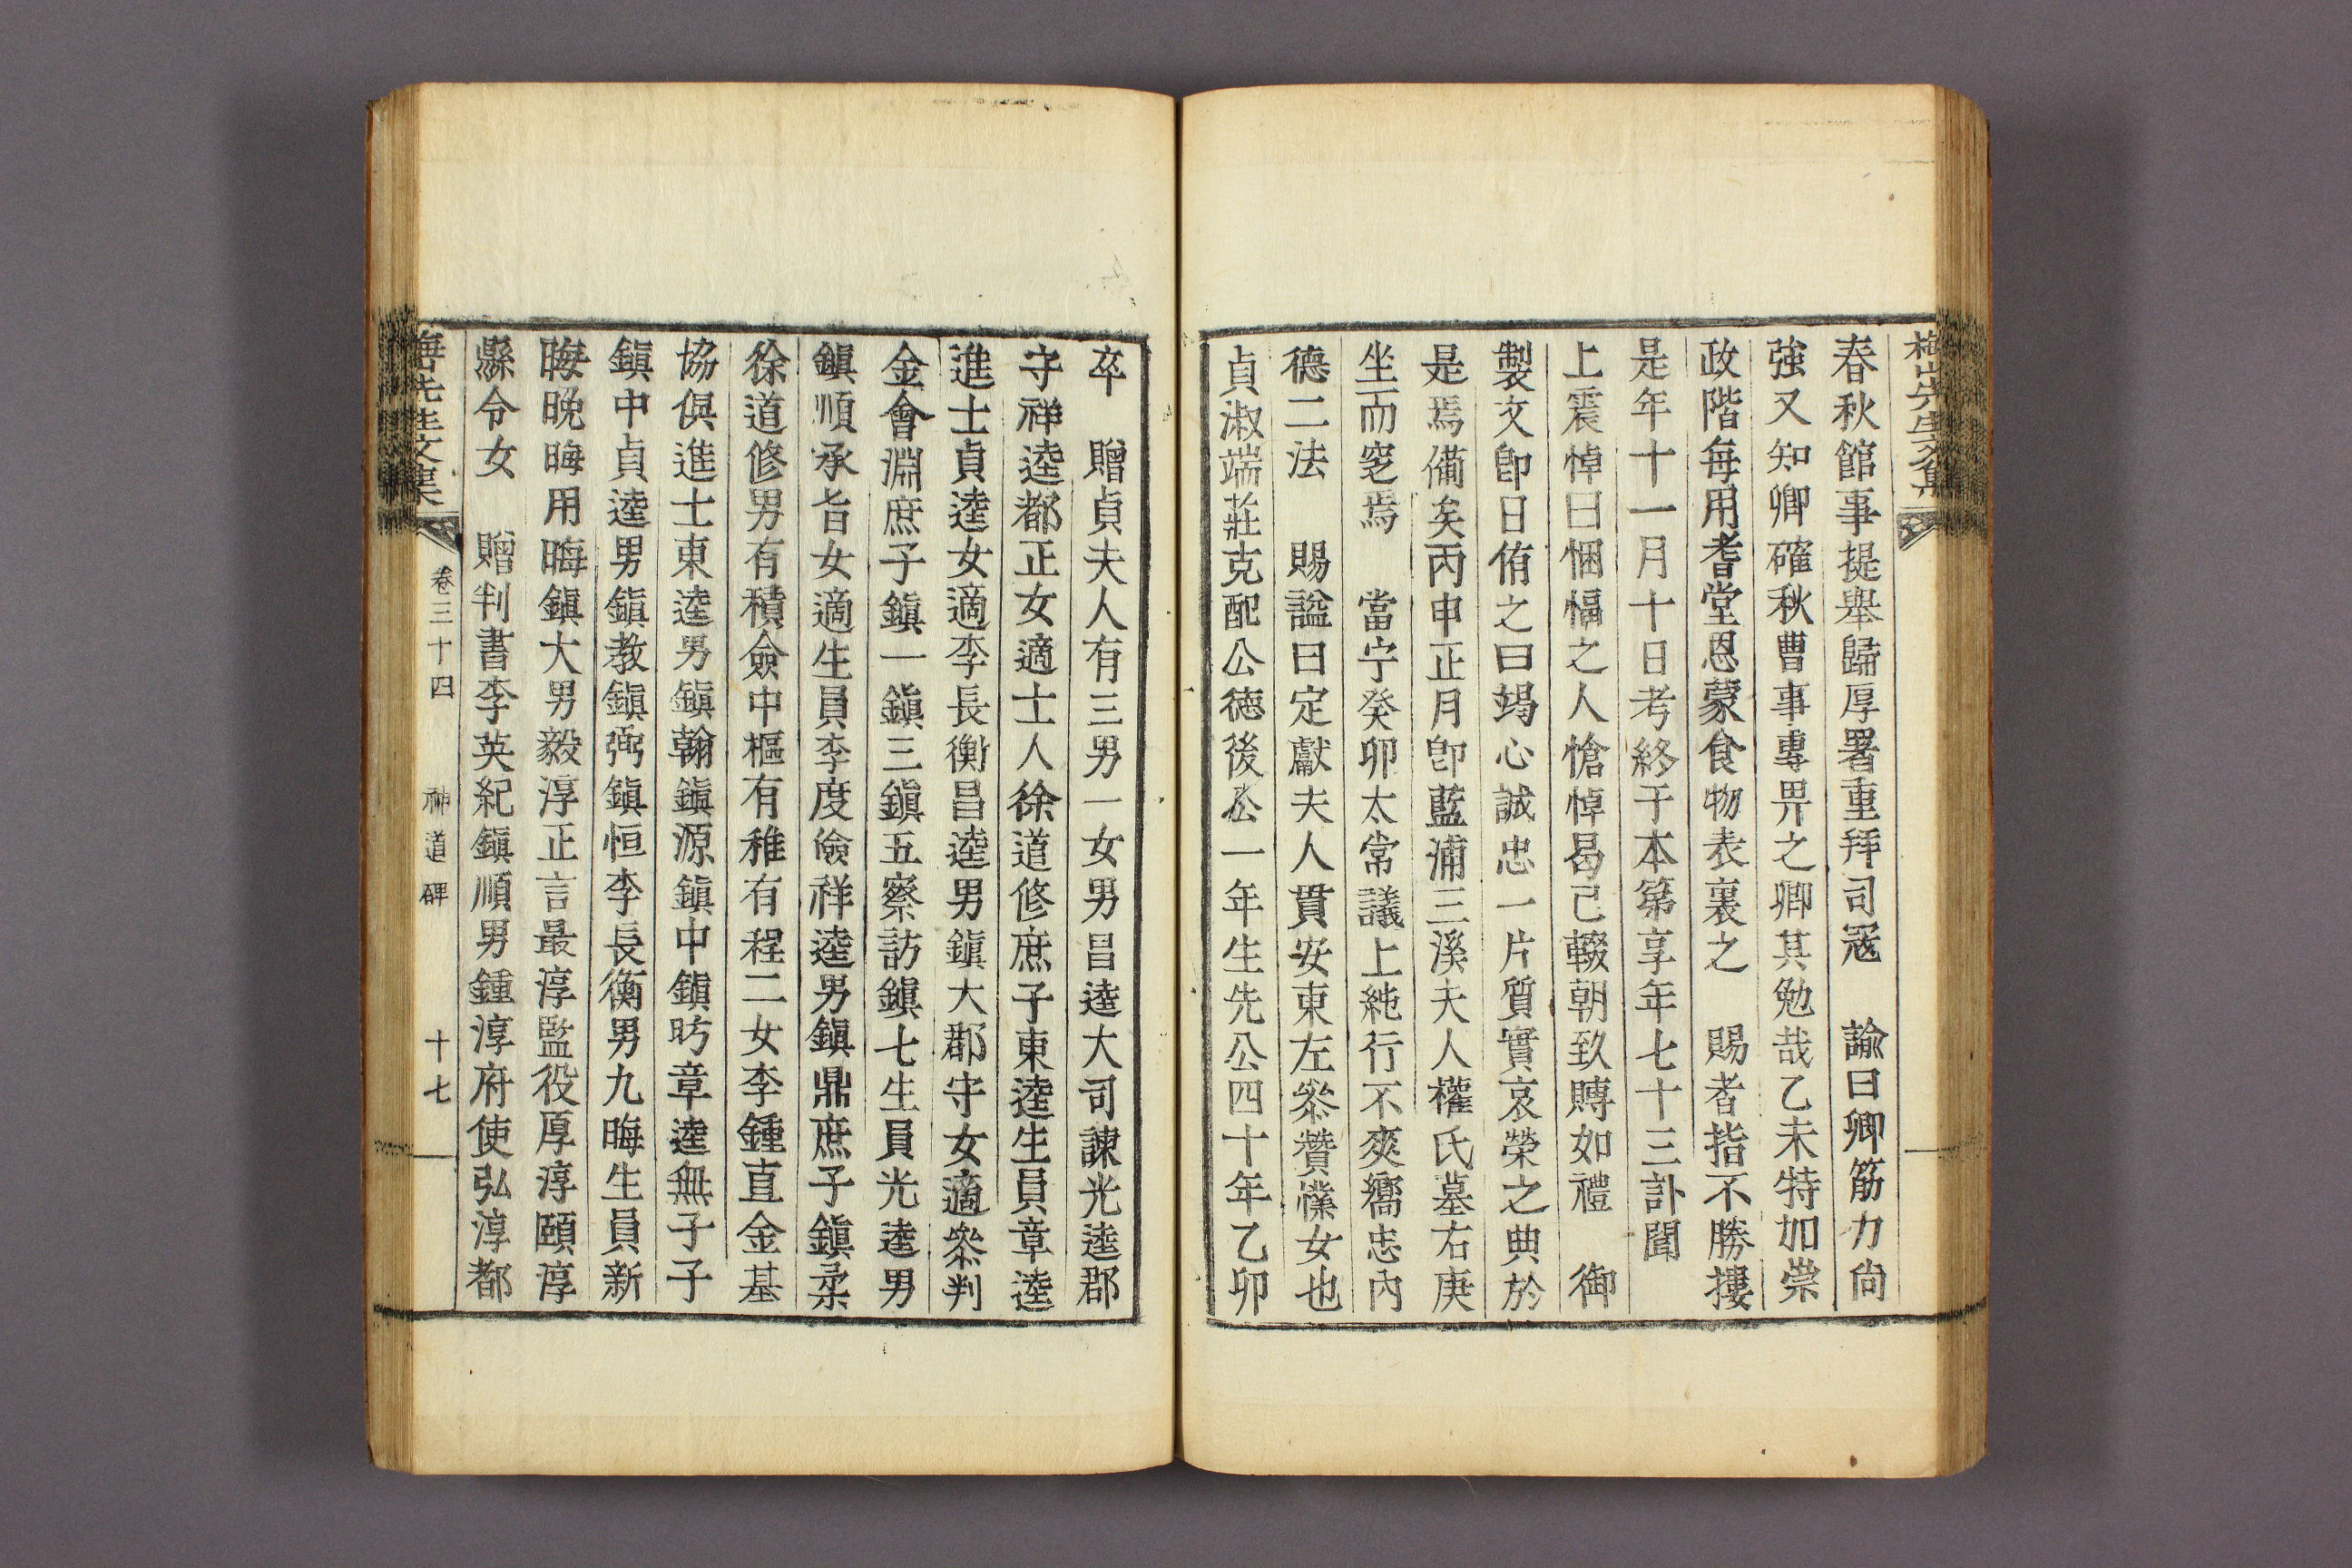 梅山先生文集
春秋館事提舉歸厚署重拜司寇　諭曰卿筋力尙
強又知卿確秋曹事專畀之卿其勉哉乙未特加崇
政階每用耆堂恩蒙食物表裏之　賜者指不勝摟
是年十一月十日考終于本第享年七十三訃聞
上震悼曰悃愊之人愴悼曷已輟朝致賻如禮　御
製文卽日侑之曰竭心誠忠一片質實哀榮之典於
是焉備矣丙申正月卽藍浦三溪夫人權氏墓右庚
坐而窆焉　當宁癸卯太常議上純行不爽嚮忠內
德二法　賜謚曰定獻夫人貫安東左叅贊憏女也
貞淑端莊克配公德後公一年生先公四十年乙卯
卒　贈貞夫人有三男一女男昌逵大司諫光逵郡
守祥逵都正女適士人徐道修庶子東逵生員章逵
進士貞逵女適李長衡昌逵男鎭大郡守女適叅判
金會淵庶子鎭一鎭三鎭五察訪鎭七生員光逵男
鎭順承旨女適生員李度儉祥逵男鎭鼎庶子鎭柔
徐道修男有積僉中樞有稚有程二女李鍾直金基
協俱進士東逵男鎭翰鎭源鎭中鎭昉章逵無子子
鎭中貞逵男鎭教鎭弼鎭恒李長衡男九晦生員新
晦晩晦用晦鎭大男毅淳正言最淳監役厚淳頤淳
縣令女　贈判書李英紀鎭順男鍾淳府使弘淳都
梅山先生文集　卷三十四　神道碑　十七